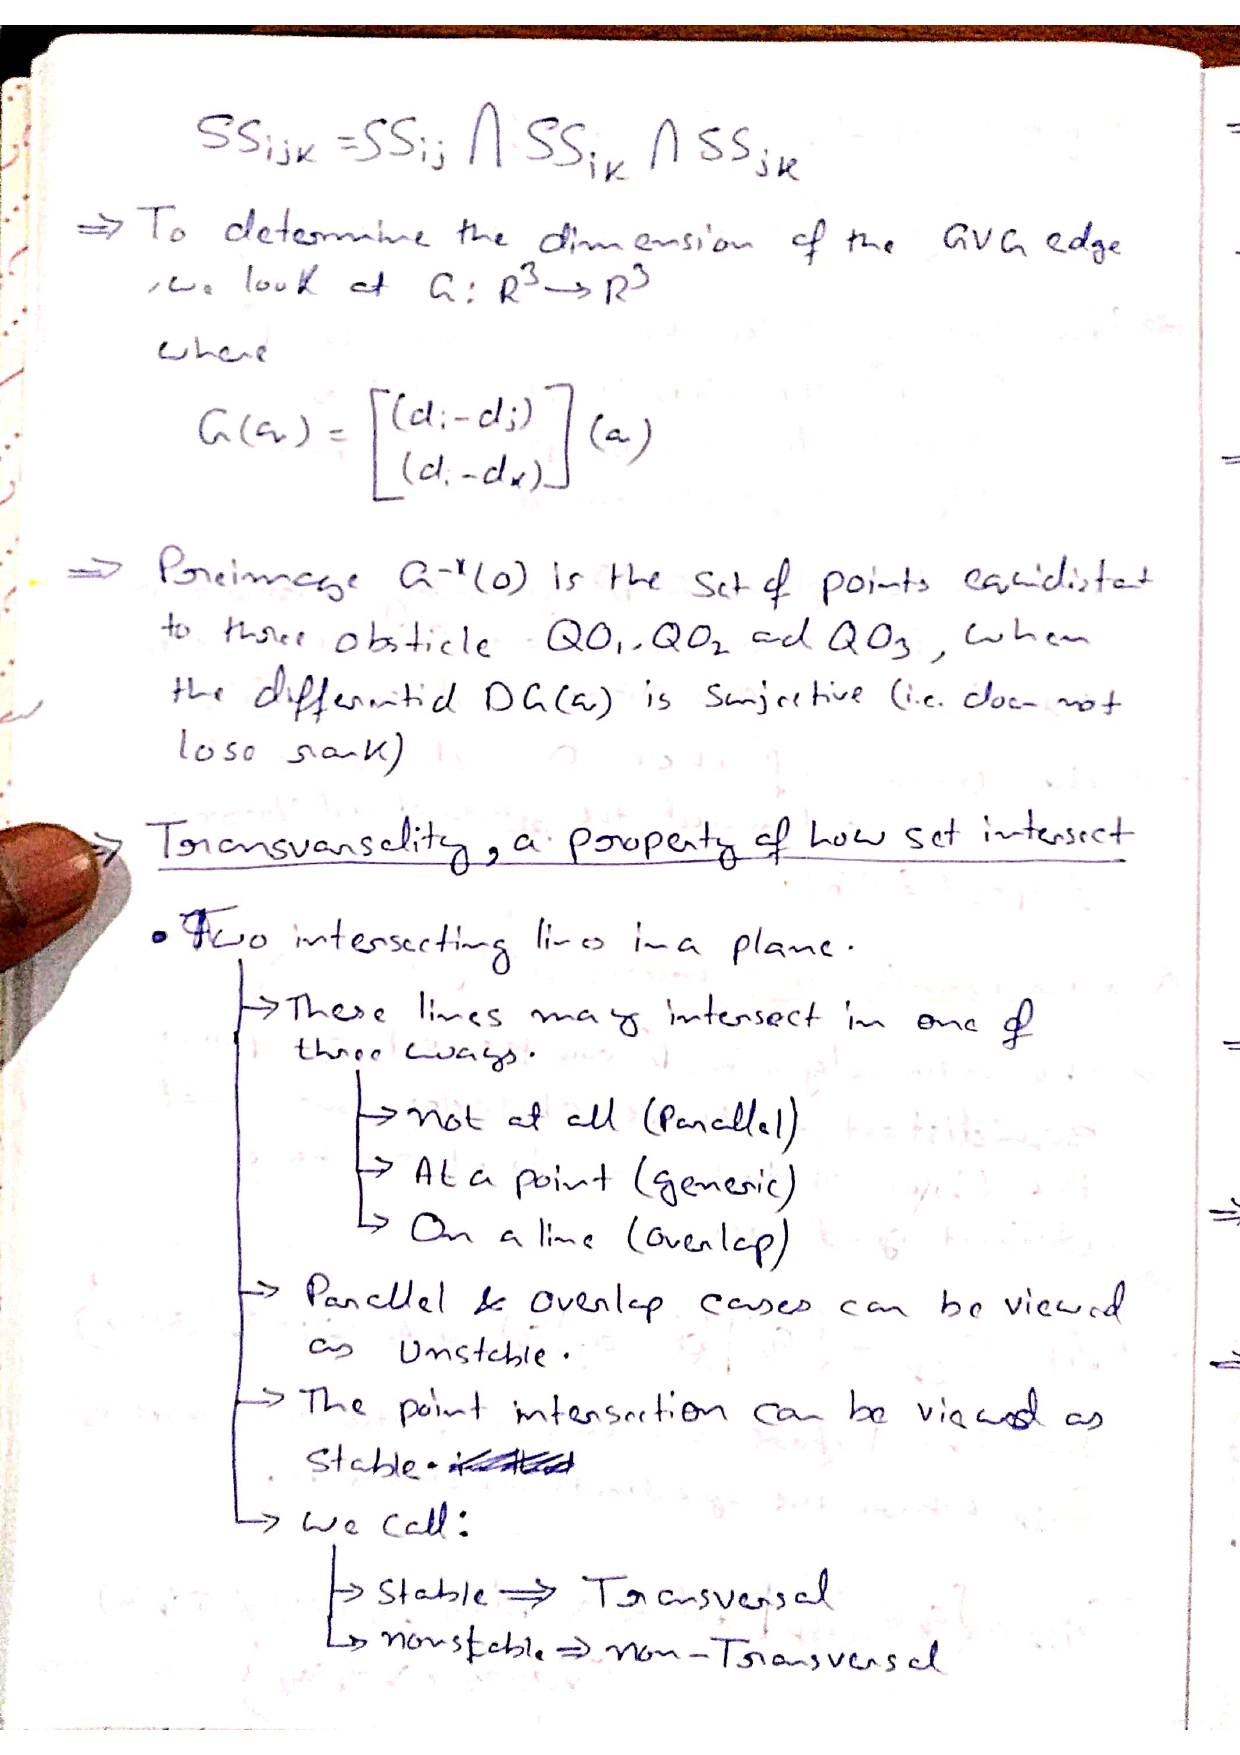 SSijk = SSij ⋂ SSik ⋂ SSjk
⇒ To determine the dimension of the GVG edge
, we look at G: R³→R³
where
G(q) = [(di-dj)
(di-dk)] (q)
⇒ Preimage G⁻¹(0) is the set of points equidistat
to three obsticle QO₁, QO₂ and QO₃, when
the differential DG(q) is surjective (i.e. does not
lose rank)
⇒ Transvarsality, a property of how set intersect
• Two intersecting lines in a plane.
→ These lines may intersect in one of
three ways.
→ not at all (Parallel)
→ At a point (generic)
→ On a line (overlap)
→ Parallel & overlap cases can be viewed
as Unstable.
→ The point intersection can be viewed as
Stable.
→ We call:
→ Stable ⇒ Transversal
→ nonstable ⇒ non-Transversal